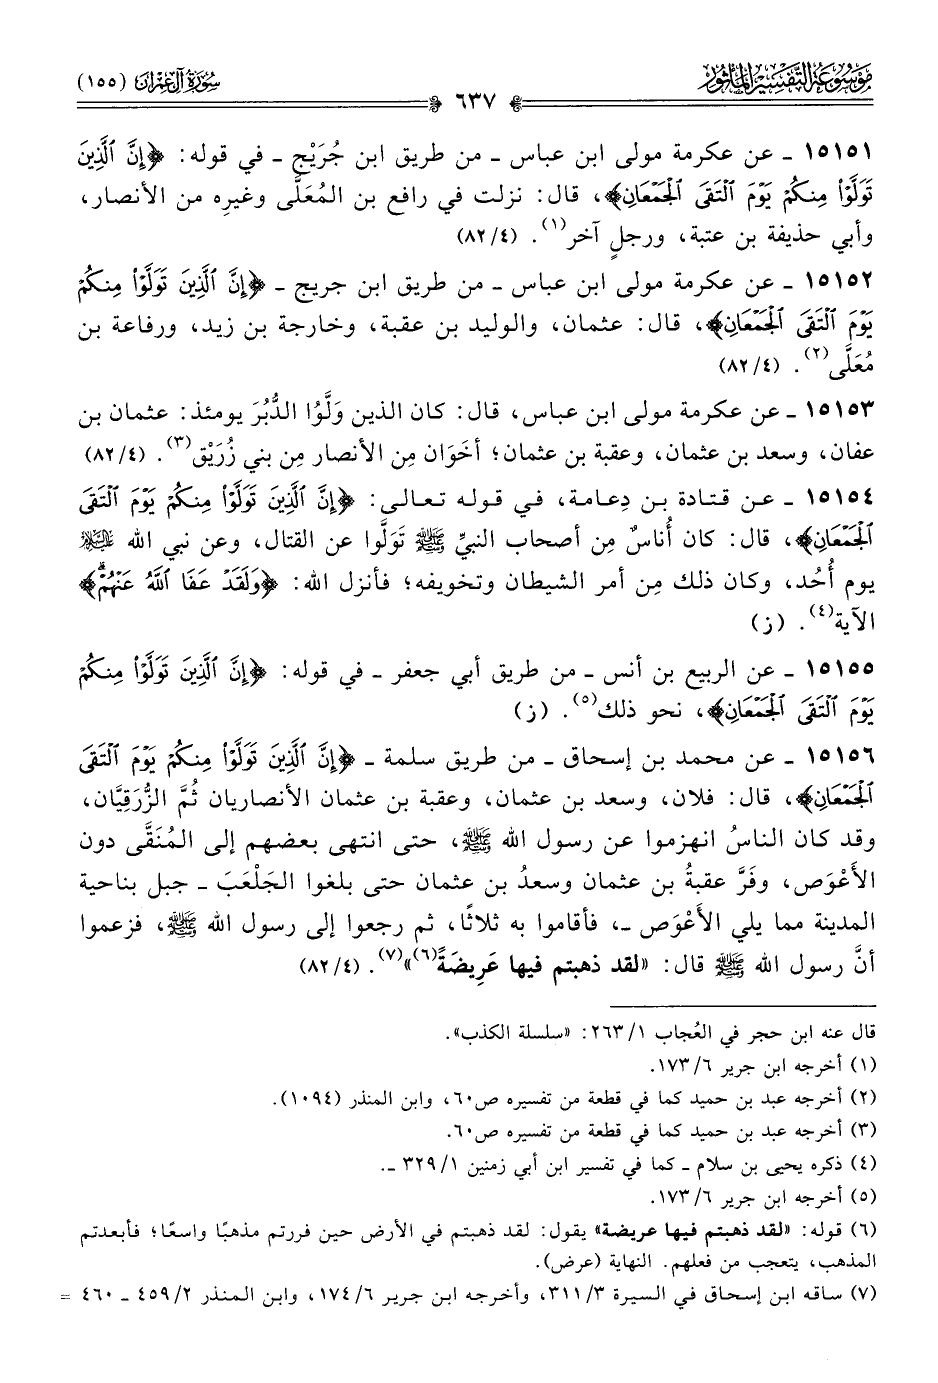 مَوْسُوعَة التَّفْسِير المَأثُور
سُورَة آل عِمْرَان (١٥٥)
٦٣٧
١٥١٥١ ـ عن عكرمة مولى ابن عباس ـ من طريق ابن جُرَيْج ـ في قوله: ﴿إِنَّ ٱلَّذِينَ
تَوَلَّوْا۟ مِنكُمْ يَوْمَ ٱلْتَقَى ٱلْجَمْعَانِ﴾، قال: نزلت في رافع بن المُعَلَّى وغيرِه من الأنصار،
وأبي حذيفة بن عتبة، ورجلٍ آخر(١). (٤/ ٨٢)
١٥١٥٢ ـ عن عكرمة مولى ابن عباس ـ من طريق ابن جريج ـ ﴿إِنَّ ٱلَّذِينَ تَوَلَّوْا۟ مِنكُمْ
يَوْمَ ٱلْتَقَى ٱلْجَمْعَانِ﴾، قال: عثمان، والوليد بن عقبة، وخارجة بن زيد، ورفاعة بن
مُعَلَّى(٢). (٤/ ٨٢)
١٥١٥٣ ـ عن عكرمة مولى ابن عباس، قال: كان الذين وَلَّوُا الدُّبُرَ يومئذ: عثمان بن
عفان، وسعد بن عثمان، وعقبة بن عثمان؛ أخَوَان مِن الأنصار مِن بني زُرَيْق(٣). (٤/ ٨٢)
١٥١٥٤ ـ عن قتادة بن دِعامة، في قوله تعالى: ﴿إِنَّ ٱلَّذِينَ تَوَلَّوْا۟ مِنكُمْ يَوْمَ ٱلْتَقَى
ٱلْجَمْعَانِ﴾، قال: كان أُناسٌ مِن أصحاب النبيِّ ﷺ تَوَلَّوا عن القتال، وعن نبي الله عليه السلام
يوم أُحُد، وكان ذلك مِن أمر الشيطان وتخويفه؛ فأنزل الله: ﴿وَلَقَدْ عَفَا ٱللَّهُ عَنْهُمْ﴾
الآية(٤). (ز)
١٥١٥٥ ـ عن الربيع بن أنس ـ من طريق أبي جعفر ـ في قوله: ﴿إِنَّ ٱلَّذِينَ تَوَلَّوْا۟ مِنكُمْ
يَوْمَ ٱلْتَقَى ٱلْجَمْعَانِ﴾، نحو ذلك(٥). (ز)
١٥١٥٦ ـ عن محمد بن إسحاق ـ من طريق سلمة ـ ﴿إِنَّ ٱلَّذِينَ تَوَلَّوْا۟ مِنكُمْ يَوْمَ ٱلْتَقَى
ٱلْجَمْعَانِ﴾، قال: فلان، وسعد بن عثمان، وعقبة بن عثمان الأنصاريان ثُمَّ الزُّرَقِيَّان،
وقد كان الناسُ انهزموا عن رسول الله ﷺ، حتى انتهى بعضهم إلى المُنَقَّى دون
الأَعْوَص، وفَرَّ عقبةُ بن عثمان وسعدُ بن عثمان حتى بلغوا الجَلْعَبَ ـ جبل بناحية
المدينة مما يلي الأَعْوَص ـ، فأقاموا به ثلاثًا، ثم رجعوا إلى رسول الله ﷺ، فزعموا
أنَّ رسول الله ﷺ قال: «لقد ذهبتم فيها عَرِيضَةً(٦)»(٧). (٤/ ٨٢)
قال عنه ابن حجر في العُجاب ١/ ٢٦٣: «سلسلة الكذب».
(١) أخرجه ابن جرير ٦/ ١٧٣.
(٢) أخرجه عبد بن حميد كما في قطعة من تفسيره ص٦٠، وابن المنذر (١٠٩٤).
(٣) أخرجه عبد بن حميد كما في قطعة من تفسيره ص٦٠.
(٤) ذكره يحيى بن سلام ـ كما في تفسير ابن أبي زمنين ١/ ٣٢٩ ـ.
(٥) أخرجه ابن جرير ٦/ ١٧٣.
(٦) قوله: «لقد ذهبتم فيها عريضة» يقول: لقد ذهبتم في الأرض حين فررتم مذهبًا واسعًا؛ فأبعدتم
المذهب، يتعجب من فعلهم. النهاية (عرض).
(٧) ساقه ابن إسحاق في السيرة ٣/ ٣١١، وأخرجه ابن جرير ٦/ ١٧٤، وابن المنذر ٢/ ٤٥٩ ـ ٤٦٠ =